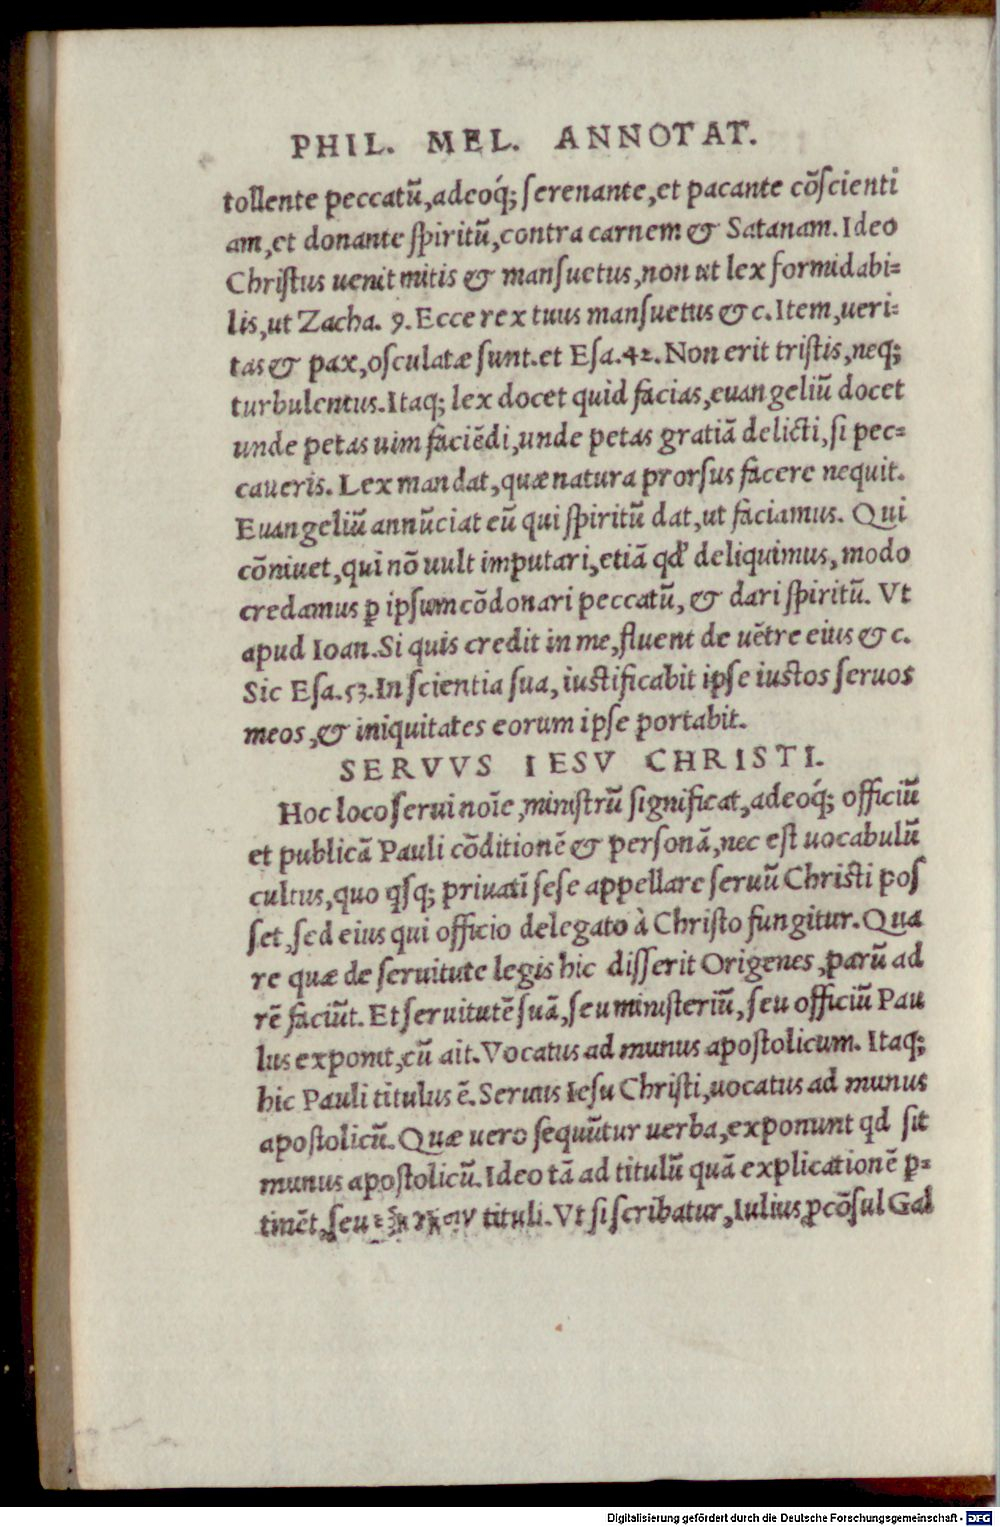 PHIL. MEL. ANNOTAT.
tollente peccatũ, adeoq́; ſerenante, et pacante cõſcienti
am, et donante ſpiritũ, contra carnem & Satanam. Ideo
Chriſtus uenit mitis & manſuetus, non ut lex formidabi=
lis, ut Zacha. 9. Ecce rex tuus manſuetus & c. Item, ueri=
tas & pax, oſculatæ ſunt. et Eſa. 42. Non erit triſtis, neq;
turbulentus. Itaq; lex docet quid facias, euangeliũ docet
unde petas uim faciẽdi, unde petas gratiã delicti, ſi pec=
caueris. Lex mandat, quæ natura prorſus facere nequit.
Euangeliũ annũciat eũ qui ſpiritũ dat, ut faciamus. Qui
cõniuet, qui nõ uult imputari, etiã qd' deliquimus, modo
credamus ꝑ ipſum cõdonari peccatũ, & dari ſpiritũ. Vt
apud Ioan. Si quis credit in me, fluent de uẽtre eius & c.
Sic Eſa. 53. In ſcientia ſua, iuſtificabit ipſe iuſtos ſeruos
meos, & iniquitates eorum ipſe portabit.
SERVVS IESV CHRISTI.
Hoc loco ſerui noĩe, miniſtrũ ſignificat, adeoq́; officiũ
et publicã Pauli cõditionẽ & perſonã, nec eſt uocabulũ
cultus, quo qſq; priuatĩ ſeſe appellare ſeruũ Chriſti poſ
ſet, ſed eius qui officio delegato à Chriſto fungitur. Qua
re quæ de ſeruitute legis hic diſſerit Origenes, parũ ad
rẽ faciũt. Et ſeruitutẽ ſuã, ſeu miniſteriũ, ſeu officiũ Pau
lus exponit, cũ ait. Vocatus ad munus apoſtolicum. Itaq;
hic Pauli titulus ẽ. Seruus Ieſu Chriſti, uocatus ad munus
apoſtolicũ. Quæ uero ſequũtur uerba, exponunt qd ſit
munus apoſtolicũ. Ideo tã ad titulũ quã explicationẽ ꝑ=
tinẽt, ſeu tituli. Vt ſi ſcribatur, Iulius ꝓcõſul Gal
Digitalisierung gefördert durch die Deutsche Forschungsgemeinschaft - DFG